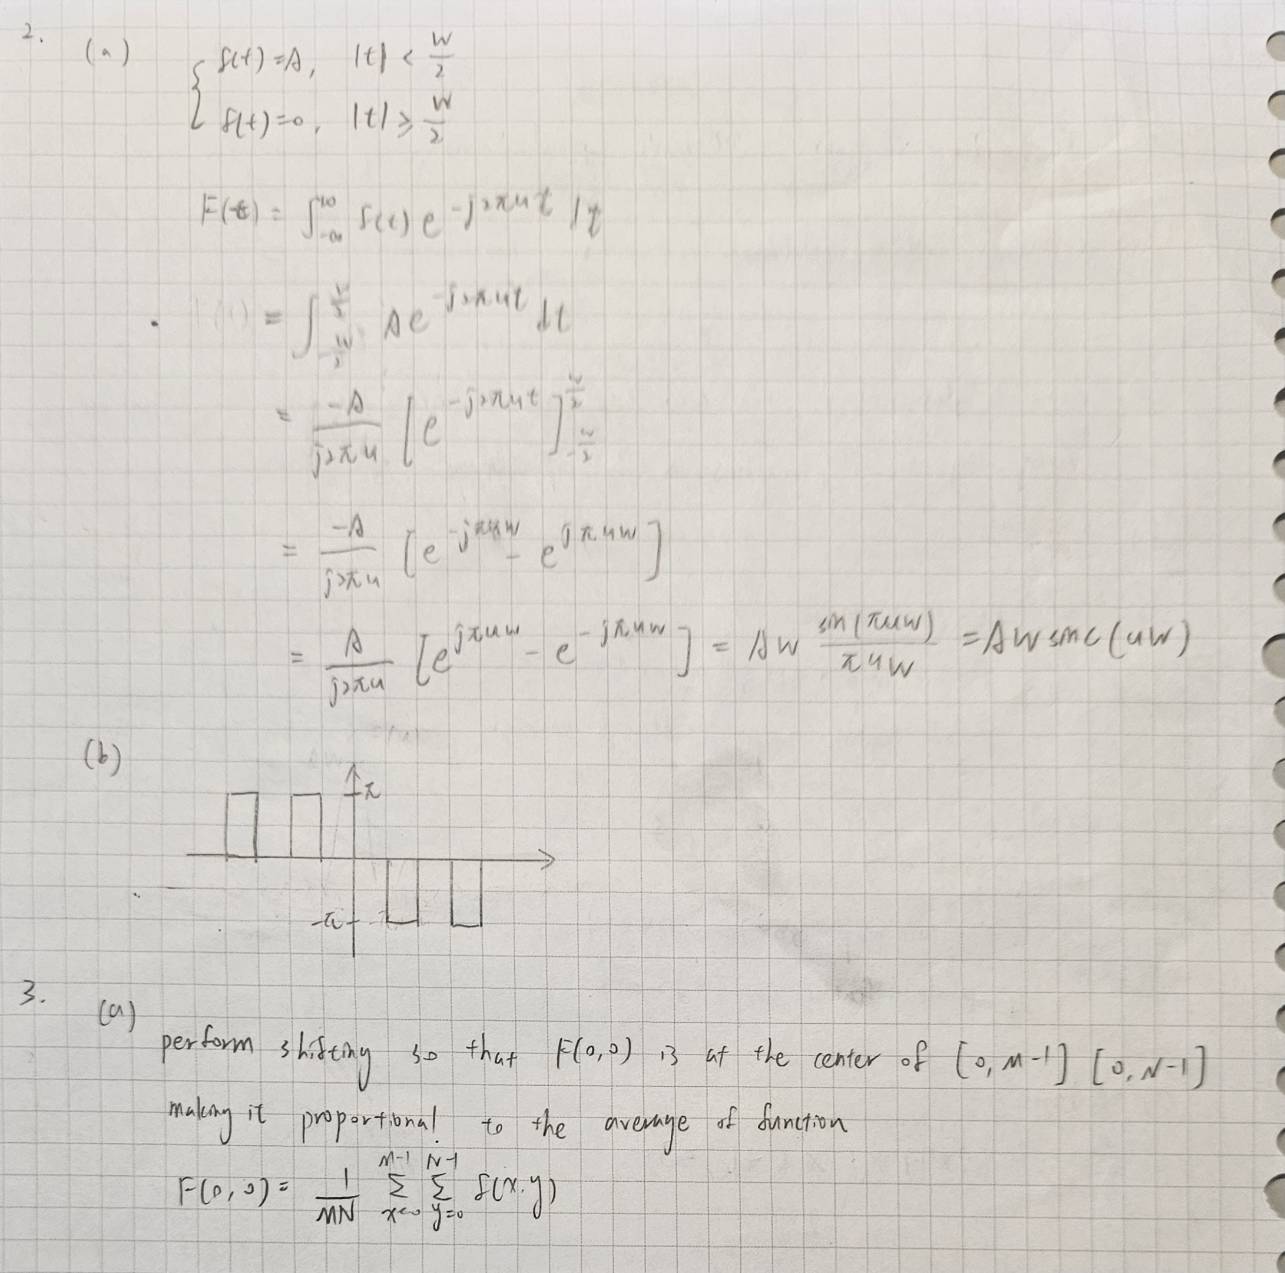 2.
(a) { f(t)=A, |t| < W/2
f(t)=0, |t| ≥ W/2
F(t) = ∫_{-∞}^{∞} f(t) e^{-j2πut} dt
= ∫_{-W/2}^{W/2} A e^{-j2πut} dt
= -A/(j2πu) [e^{-j2πut}]_{-W/2}^{W/2}
= -A/(j2πu) [e^{-jπuW} - e^{jπuW}]
= A/(j2πu) [e^{jπuW} - e^{-jπuW}] = AW sin(πuW)/(πuW) = AW sinc(uW)
(b)
π
-π
3.
(a)
perform shifting so that F(0,0) is at the center of [0, M-1] [0, N-1]
making it proportional to the average of function
F(0,0) = 1/MN Σ_{x=0}^{M-1} Σ_{y=0}^{N-1} f(x,y)